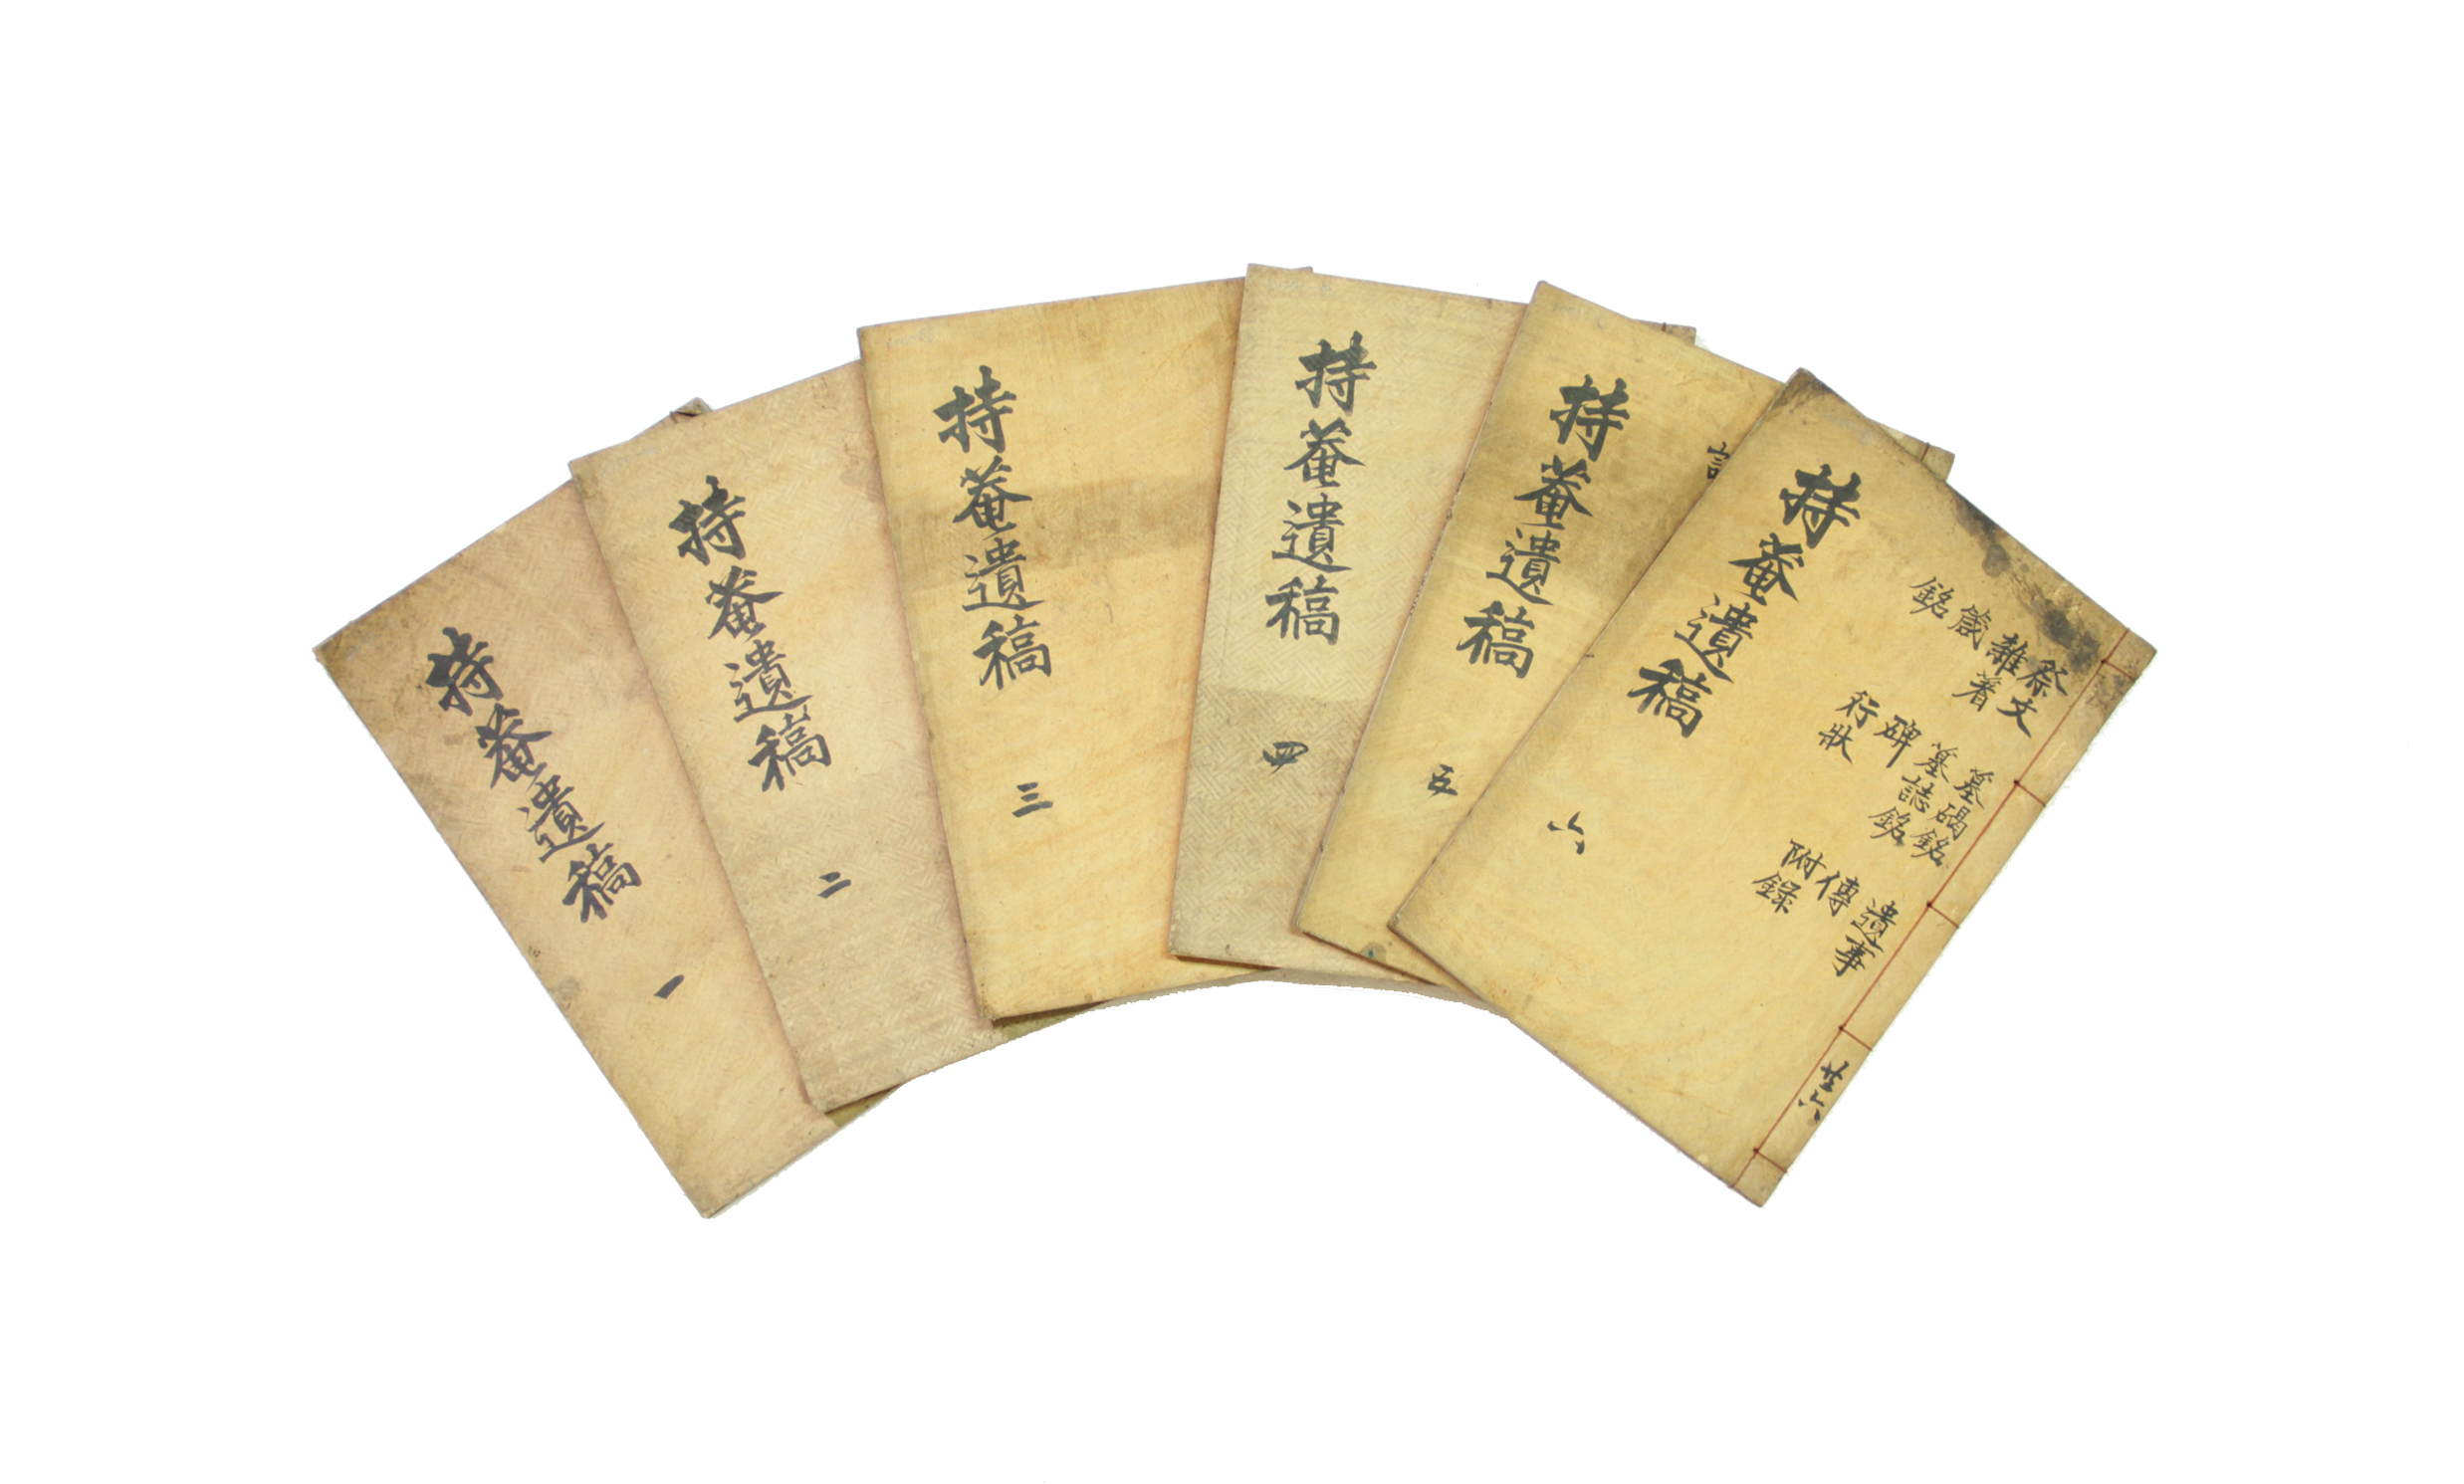 持菴遺稿 一
持菴遺稿 二
持菴遺稿 三
持菴遺稿 四
持菴遺稿 五
持菴遺稿 六
祭文 墓碣銘 遺事
雜著 墓誌銘 傳
箴 碑 附録
銘 行狀
共六